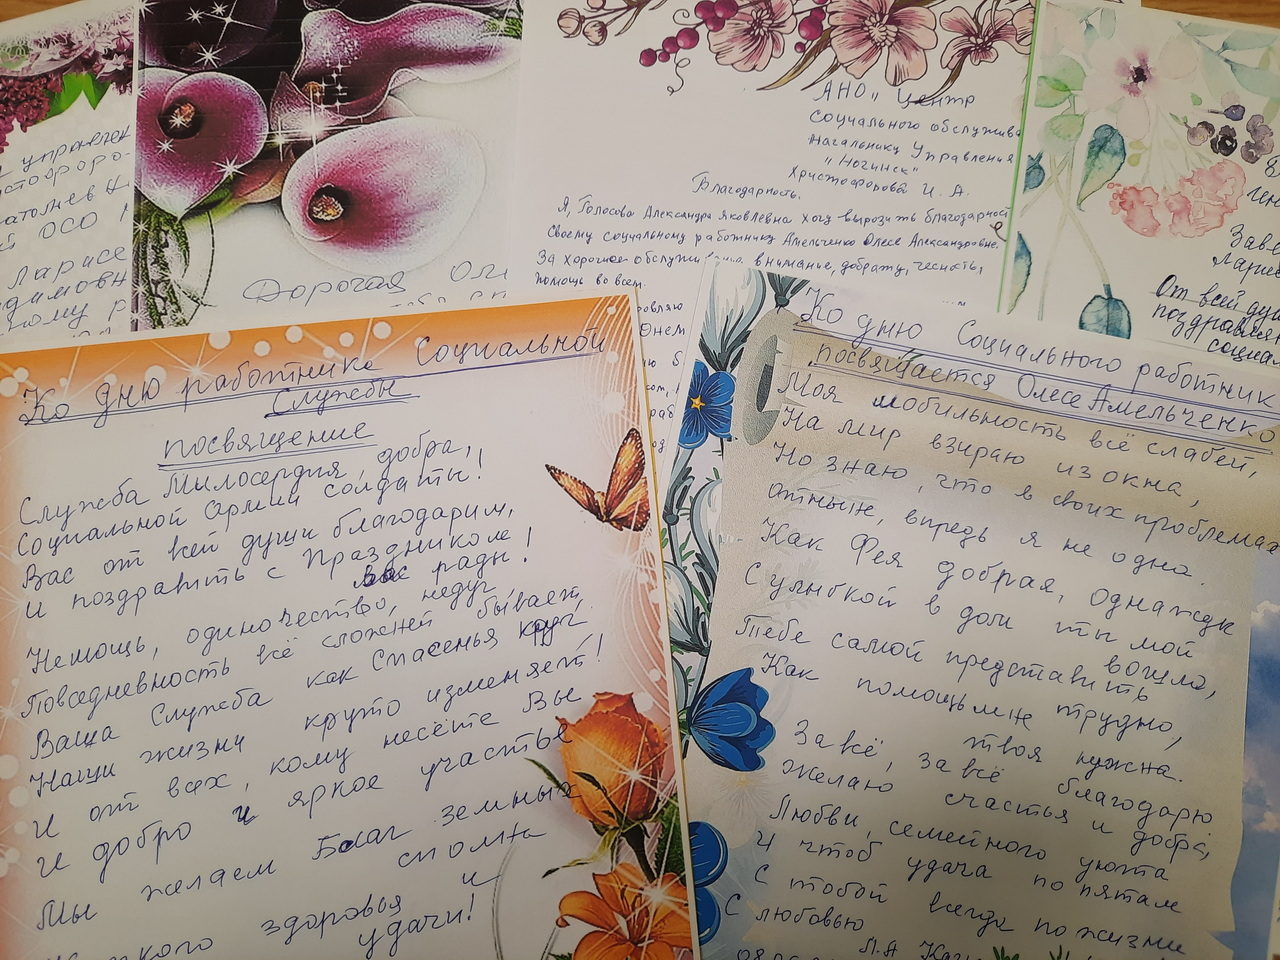 управлен
Ларисе
Дорогая Оле
АНО "Центр
социального обслужива
Начальнику Управления
"Ногинск"
Христофоровой И. А.
Благодарность.
Я, Голосова Александра Яковлевна хочу вырозить благодарност
своему социальному работнику Амельченко Олесе Александровне.
За хорошое обслуживание внимание, доброту, честность,
помощь во всем.
От всей души
поздравля
социал
Ко дню работника Социальной
Службы
посвящение
Служба Милосердия, добра,
Социальной Армии солдаты!
Вас от всей души благодарим,
и поздравить с Праздником
вас рады!
Немощь, одиночество, недуг
Повседневность всё сложней бывает,
Ваша Служба как Спасенья круг
Наши жизни круто изменяет!
И от всех, кому несёте Вы
И добро и яркое участье
Мы желаем Благ земных
сполна
здоровья и
удачи!
Ко дню Социального работник
посвящается Олесе Амельченко
Моя мобильность всё слабей,
На мир взираю из окна,
Но знаю, что в своих проблемах
отныне, впредь я не одна.
Как Фея добрая, однажды
С улыбкой в дом ты мой
вошла,
Тебе самой представить
трудно,
Как помощь мне
твоя нужна.
За всё, за всё благодарю
Желаю счастья и добра,
Любви, семейного уюта
И чтоб удача по пятам
С тобой всегда по жизни
С любовью
Л.А